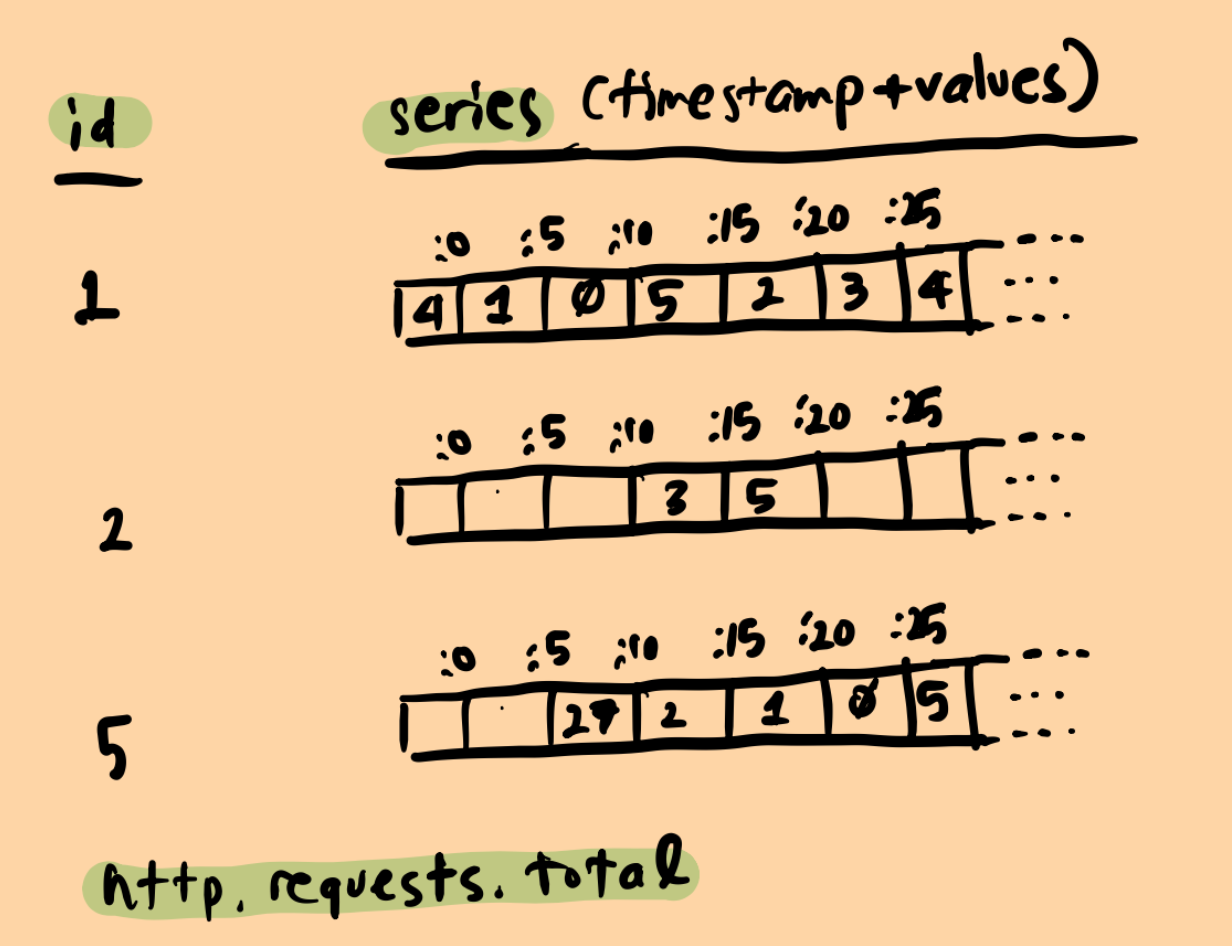 id series (timestamp+values)
:0 :5 :10 :15 :20 :25
1 4 1 0 5 2 3 4
:0 :5 :10 :15 :20 :25
2 3 5
:0 :5 :10 :15 :20 :25
5 27 2 1 0 5
http.requests.total